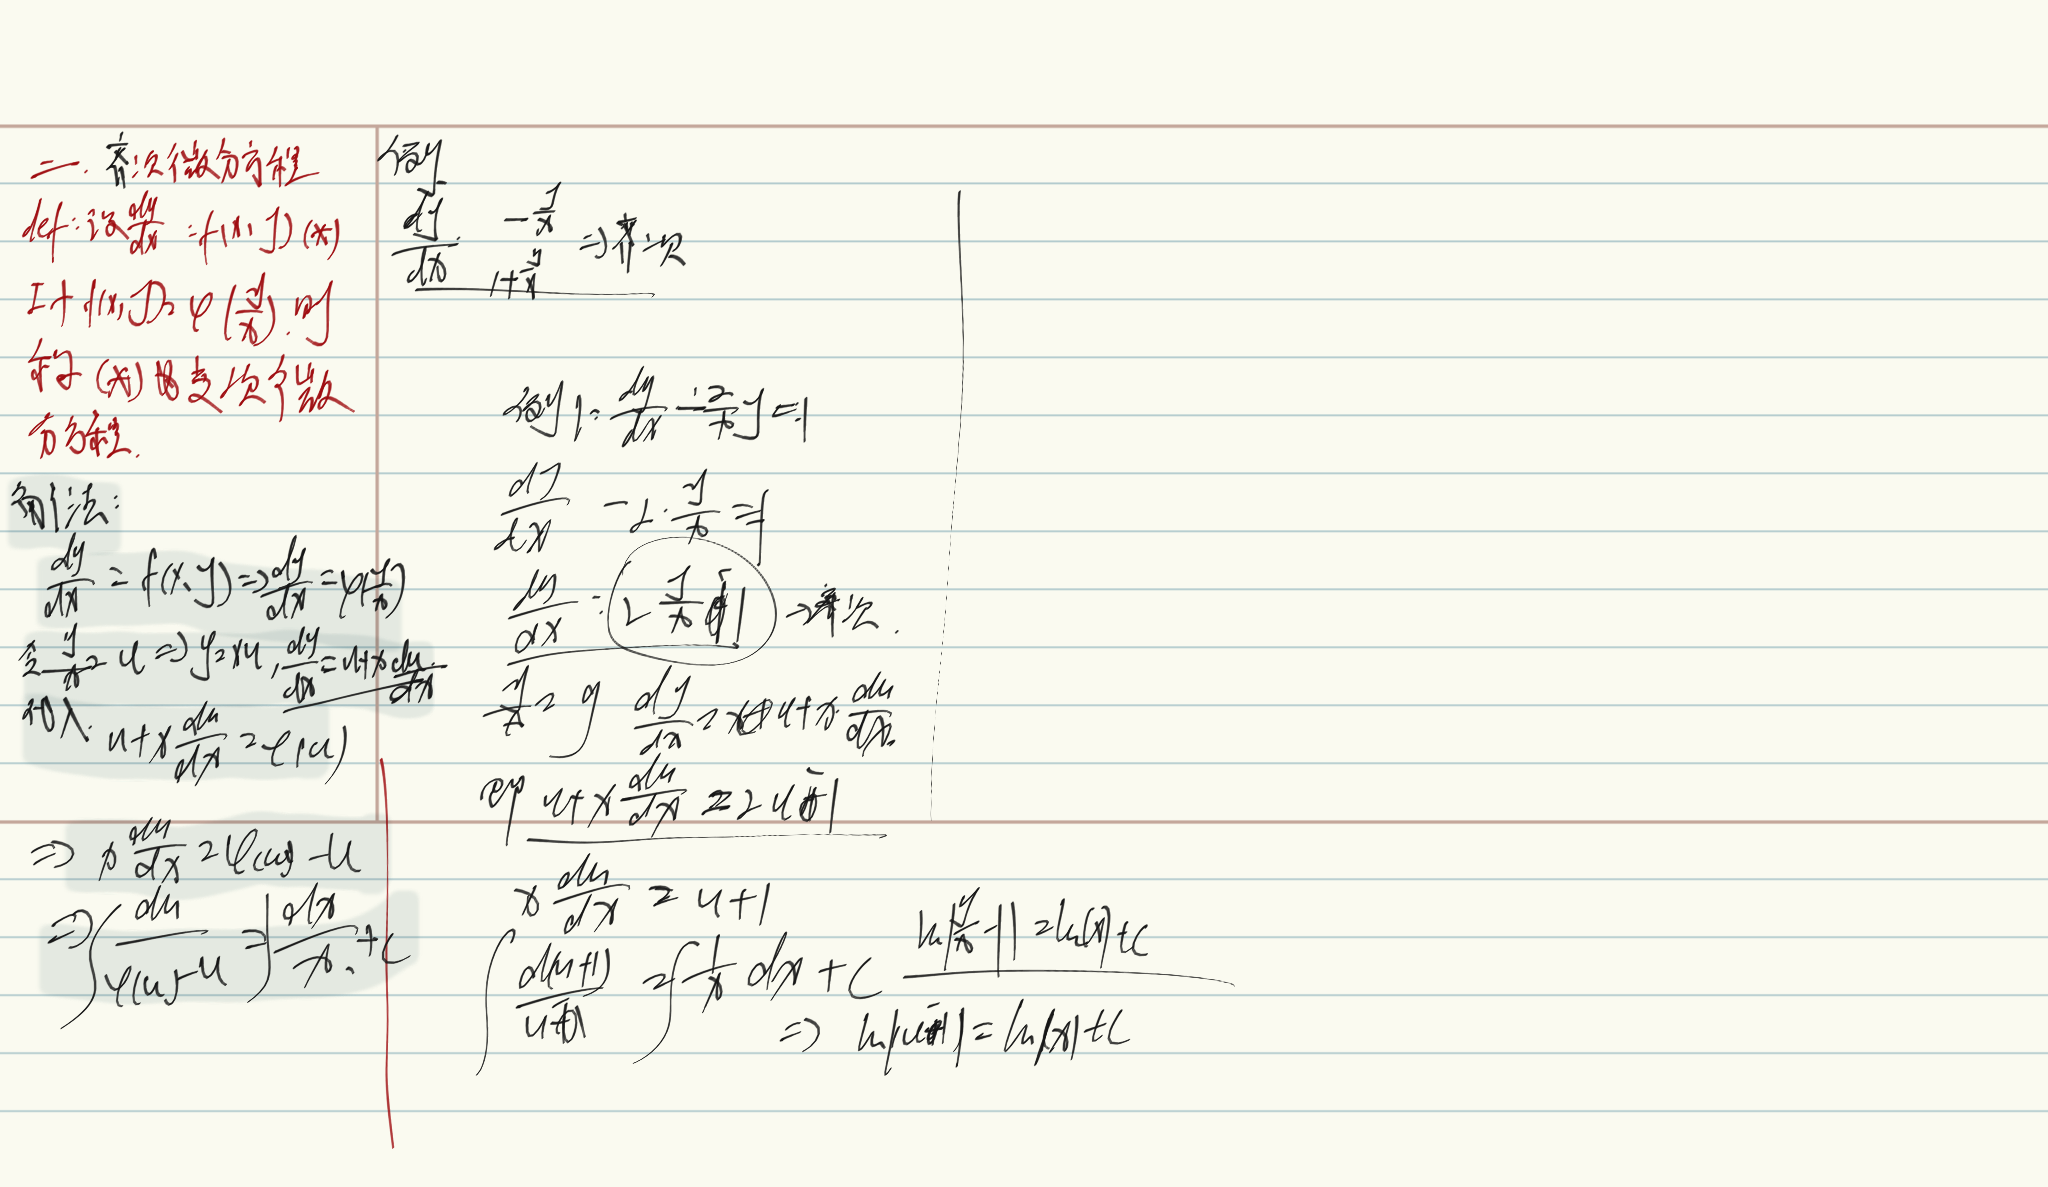 二. 齐次微分方程
def: 设 dy/dx = f(x, y) (*)
If f(x, y) = φ(y/x). 则
称 (*) 为齐次微
分方程.
解法:
dy/dx = f(x, y) => dy/dx = φ(y/x)
令 y/x = u => y = xu, dy/dx = u + x du/dx
代入. u + x du/dx = φ(u)
=> x du/dx = φ(u) - u
=> ∫ du/(φ(u) - u) = ∫ dx/x + c
例
dy/dx - y/x 1 + y/x => 齐次
例1: dy/dx - 2/x y = -1
dy/dx - 2 · y/x = -1
dy/dx = 2 y/x - 1 => 齐次.
y/x = u dy/dx = u + x du/dx
即 u + x du/dx = 2u - 1
x du/dx = u + 1
∫ d(u+1)/(u-1) = ∫ 1/x dx + C
=> ln|u-1| = ln|x| + C
ln|y/x - 1| = ln|x| + C